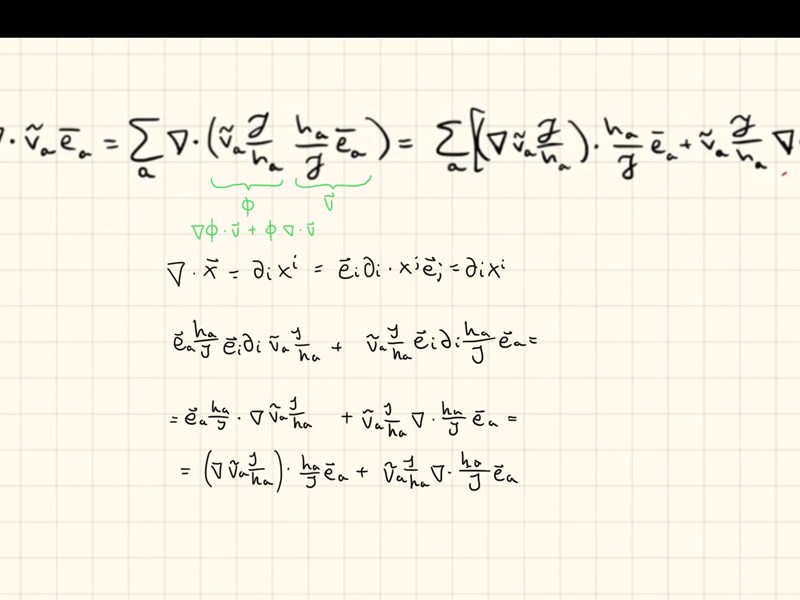 · ṽₐ ēₐ = ∑ₐ ∇ · (ṽₐ J/hₐ hₐ/J ēₐ) = ∑ₐ [(∇ ṽₐ J/hₐ) · hₐ/J ēₐ + ṽₐ J/hₐ ∇
ϕ v⃗
∇ϕ · v⃗ + ϕ ∇ · v⃗
∇ · x⃗ = ∂ᵢxⁱ = e⃗ᵢ∂ᵢ · xʲe⃗ⱼ = ∂ᵢxⁱ
e⃗ₐ hₐ/J e⃗ᵢ∂ᵢ ṽₐ J/hₐ + ṽₐ J/hₐ e⃗ᵢ∂ᵢ hₐ/J e⃗ₐ =
= e⃗ₐ hₐ/J · ∇ ṽₐ J/hₐ + ṽₐ J/hₐ ∇ · hₐ/J e⃗ₐ =
= (∇ ṽₐ J/hₐ) · hₐ/J e⃗ₐ + ṽₐ J/hₐ ∇ · hₐ/J e⃗ₐ